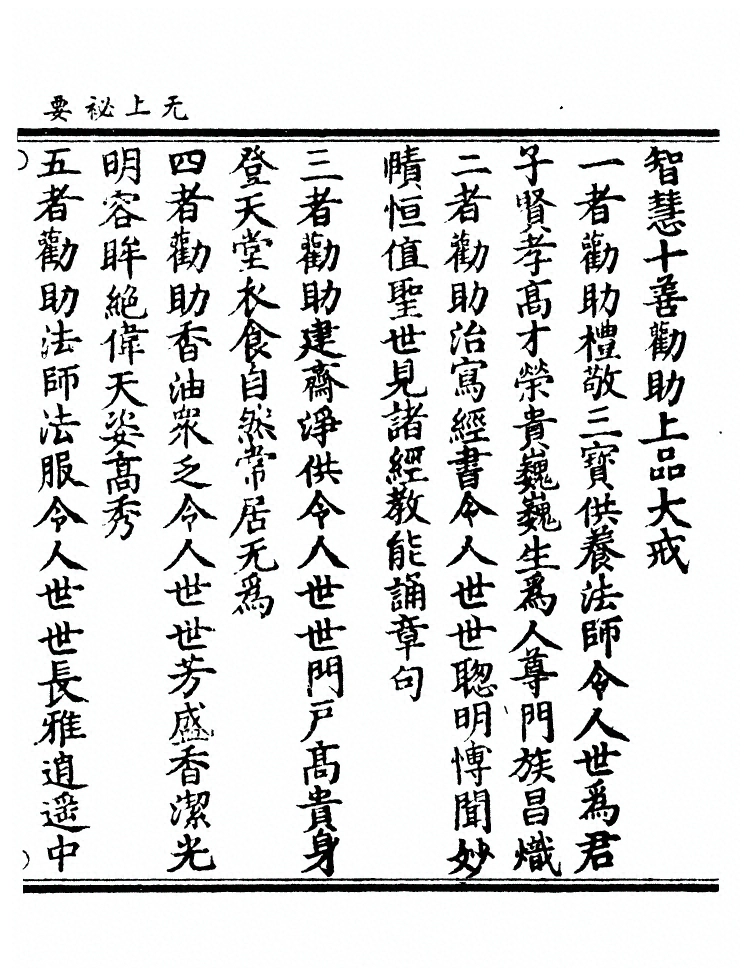 无上祕要
智慧十善勸助上品大戒
一者勸助禮敬三寶供養法師令人世爲君
子賢孝高才榮貴巍巍生爲人尊門族昌熾
二者勸助治寫經書令人世世聰明博聞妙
賾恒值聖世見諸經教能誦章句
三者勸助建齋淨供令人世世門戶高貴身
登天堂衣食自然常居无爲
四者勸助香油眾乏令人世世芳盛香潔光
明容眸絕偉天姿高秀
五者勸助法師法服令人世世長雅逍遥中